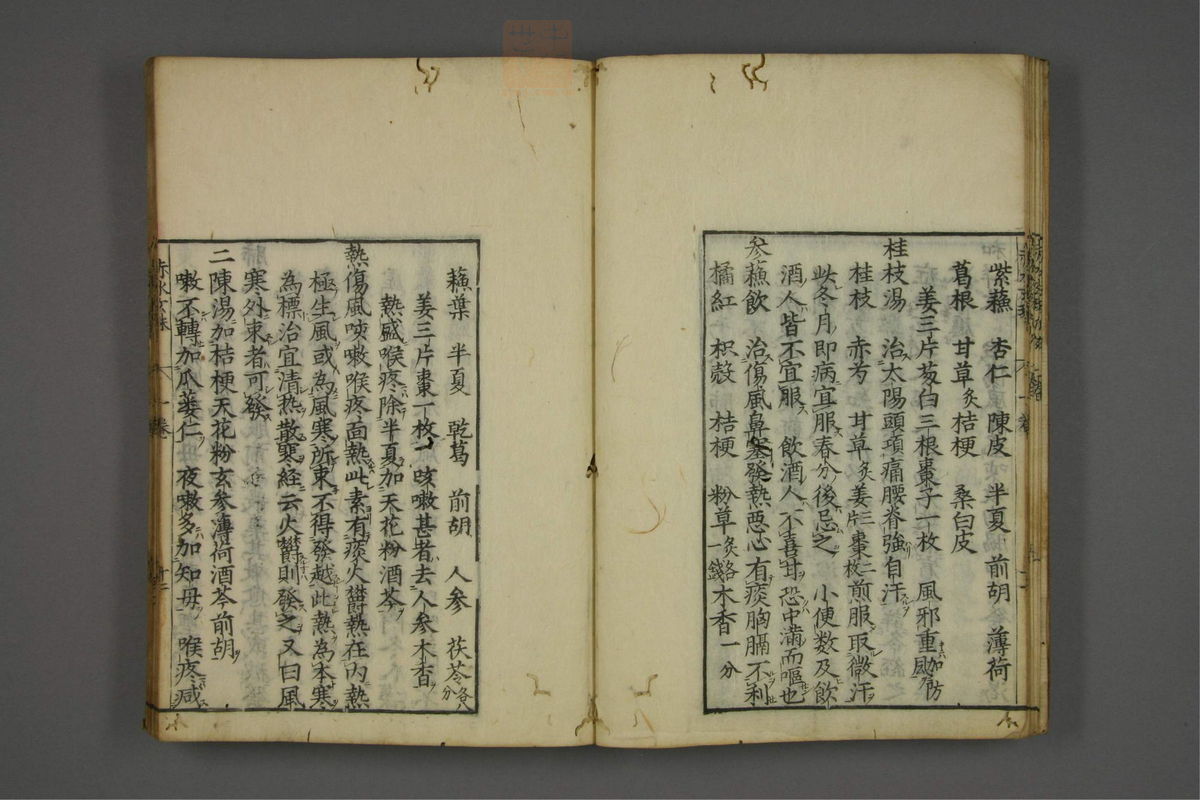 紫蘓 杏仁 陳皮 半夏 前胡 薄荷
葛根 甘草炙 桔梗 桑白皮
姜三片芴白三根棗子一枚 風邪重加防風
桂枝湯 治太陽頭項痛腰脊強自汗
桂枝 赤芍 甘草炙 姜三片棗二枚煎服取微汗
此冬月即病宜服春分後忌之 小便数及飲
酒人皆不宜服 飲酒人不喜甘恐中滿而嘔也
参蘓飲 治傷風鼻塞發熱惡心有痰胸膈不利
橘紅 枳殼 桔梗 粉草炙各一錢 木香一分
蘓葉 半夏 乾葛 前胡 人参 茯苓各八分
姜三片棗一枚 咳嗽甚者去人参木香
熱盛喉疼除半夏加天花粉酒芩
熱傷風咳嗽喉疼面熱此素有痰火欝熱在内熱
極生風或為風寒所束不得發越此熱為本寒
為標治宜清熱散寒経云火欝則發之又曰風
寒外束者可發
二陳湯加桔梗天花粉玄参薄荷酒芩前胡
嗽不轉加瓜蔞仁 夜嗽多加知母 喉疼感
赤水玄珠 一卷 十二